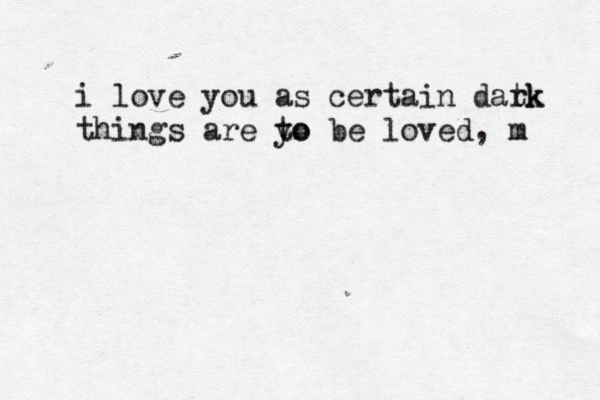 i love you as certain dark
things are to be loved, m